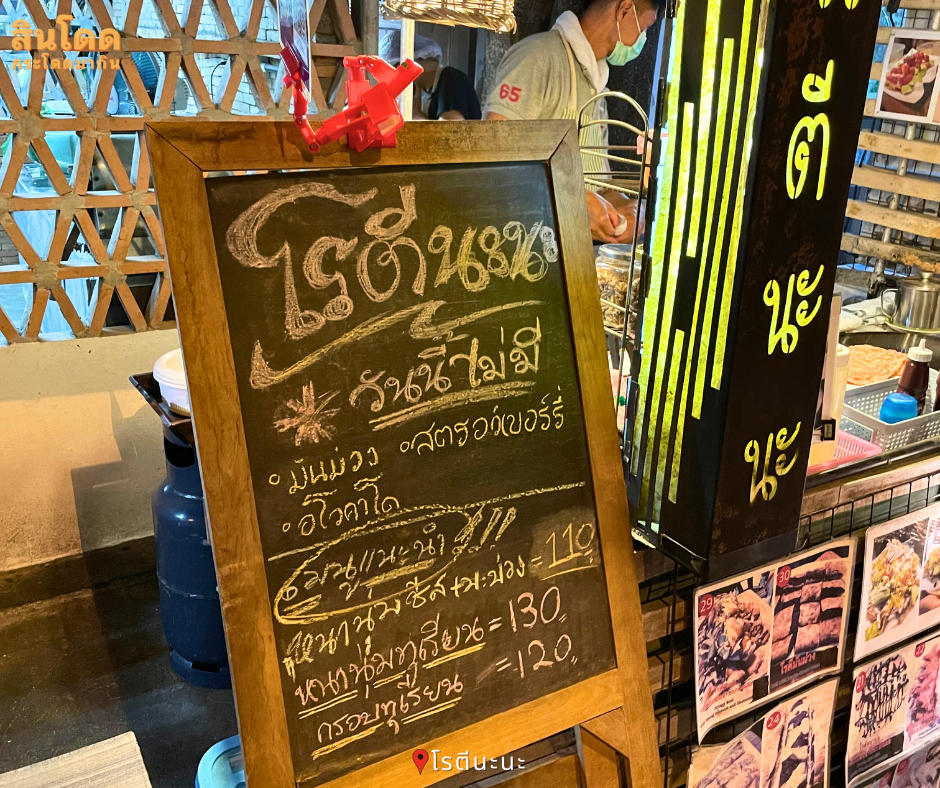 สินโดด
กระโดดมากิน
65
โรตีนะนะ
วันนี้ไม่มี
มันม่วง
สตรอว์เบอร์รี่
อโวคาโด
เมนูแนะนำ !!!
หนานุ่มชีส+มะม่วง = 110
หนานุ่มทุเรียน = 130
กรอบทุเรียน = 120
ตี
นะ
นะ
29
30
โรตีมันม่วง
24
โรตีนะนะ